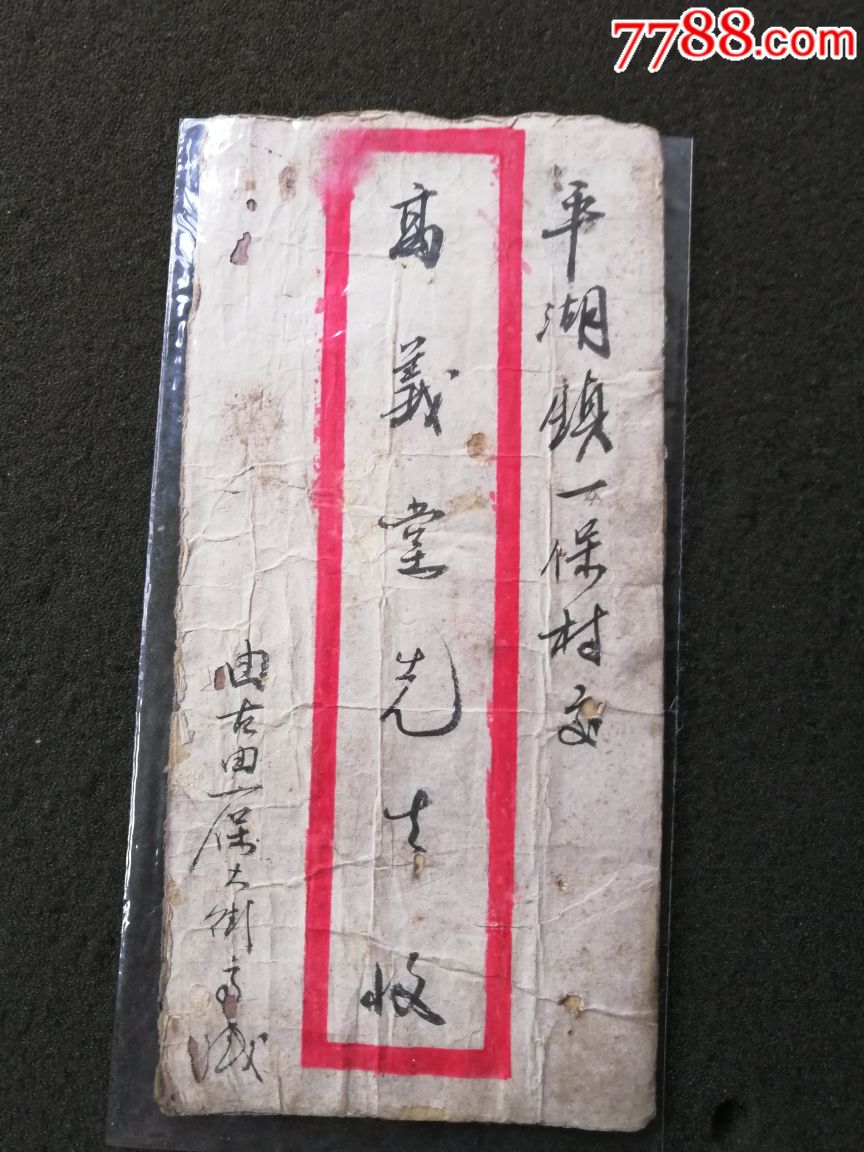 7788.com
平湖鎮一保村交
高義堂先生收
由古田一保大街高緘